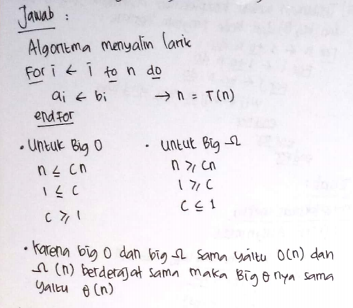 Jawab :
Algoritma menyalin larik
For i ← 1 to n do
ai ← bi → n = T(n)
endfor
• Untuk Big O
n ≤ Cn
1 ≤ C
C ≥ 1
• Untuk Big Ω
n ≥ Cn
1 ≥ C
C ≤ 1
• Karena big O dan big Ω sama yaitu O(n) dan
Ω (n) berderajat sama maka Big θ nya sama
yaitu θ(n)